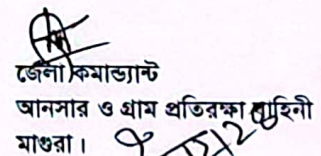 জেলা কমান্ড্যান্ট
আনসার ও গ্রাম প্রতিরক্ষা বাহিনী
মাগুরা।